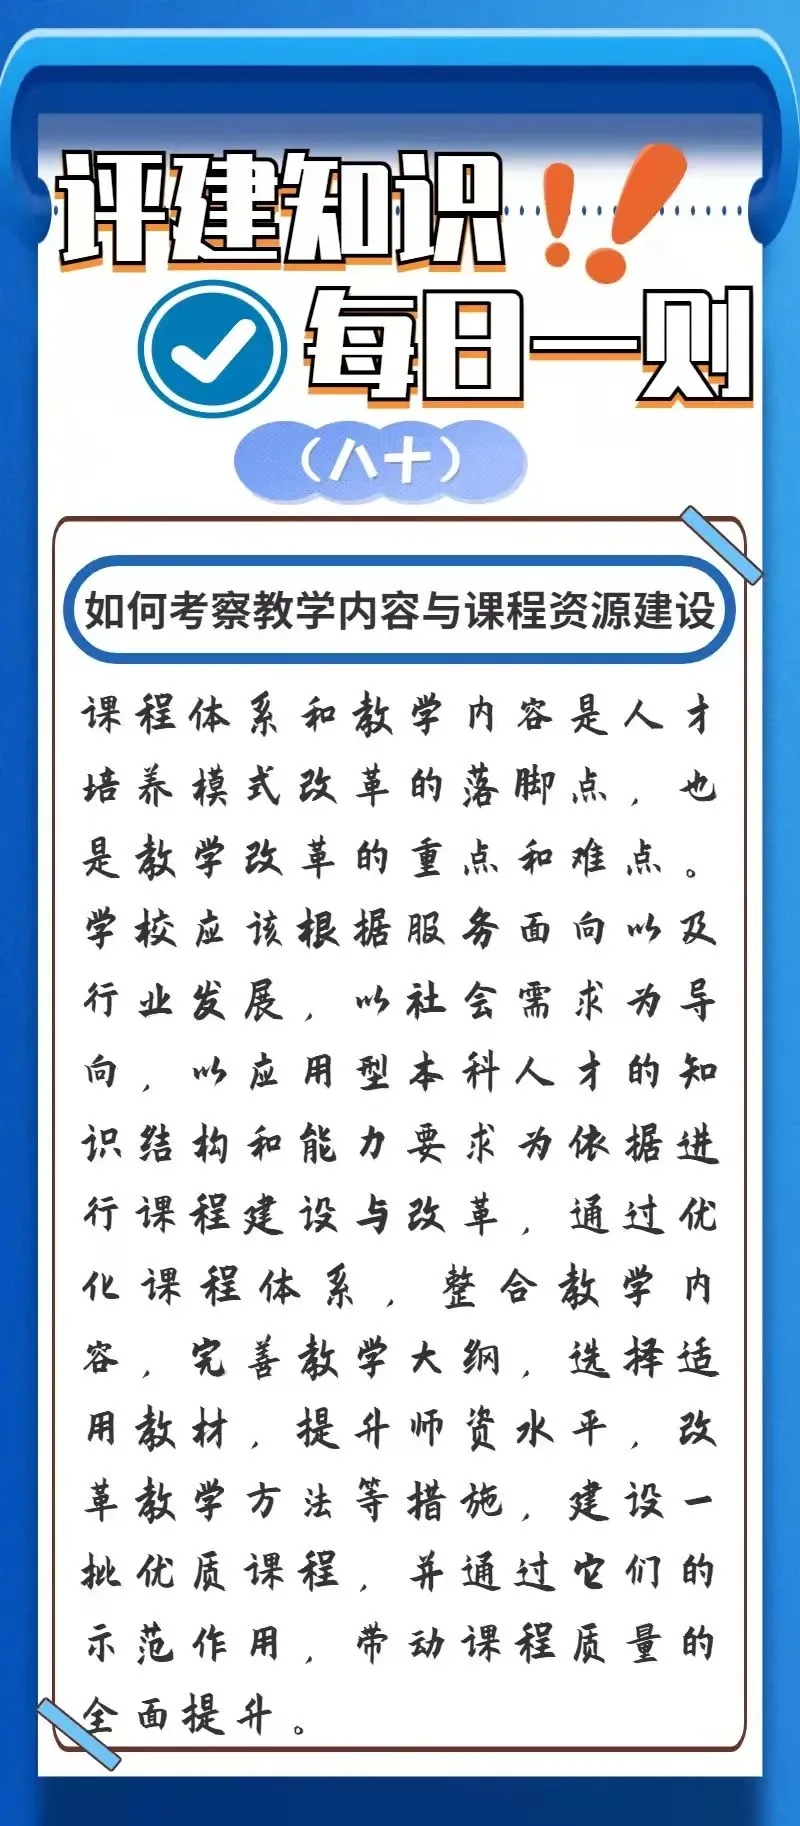 评建知识!!
每日一则
（八十）
如何考察教学内容与课程资源建设
课程体系和教学内容是人才
培养模式改革的落脚点，也
是教学改革的重点和难点。
学校应该根据服务面向以及
行业发展，以社会需求为导
向，以应用型本科人才的知
识结构和能力要求为依据进
行课程建设与改革，通过优
化课程体系，整合教学内
容，完善教学大纲，选择适
用教材，提升师资水平，改
革教学方法等措施，建设一
批优质课程，并通过它们的
示范作用，带动课程质量的
全面提升。